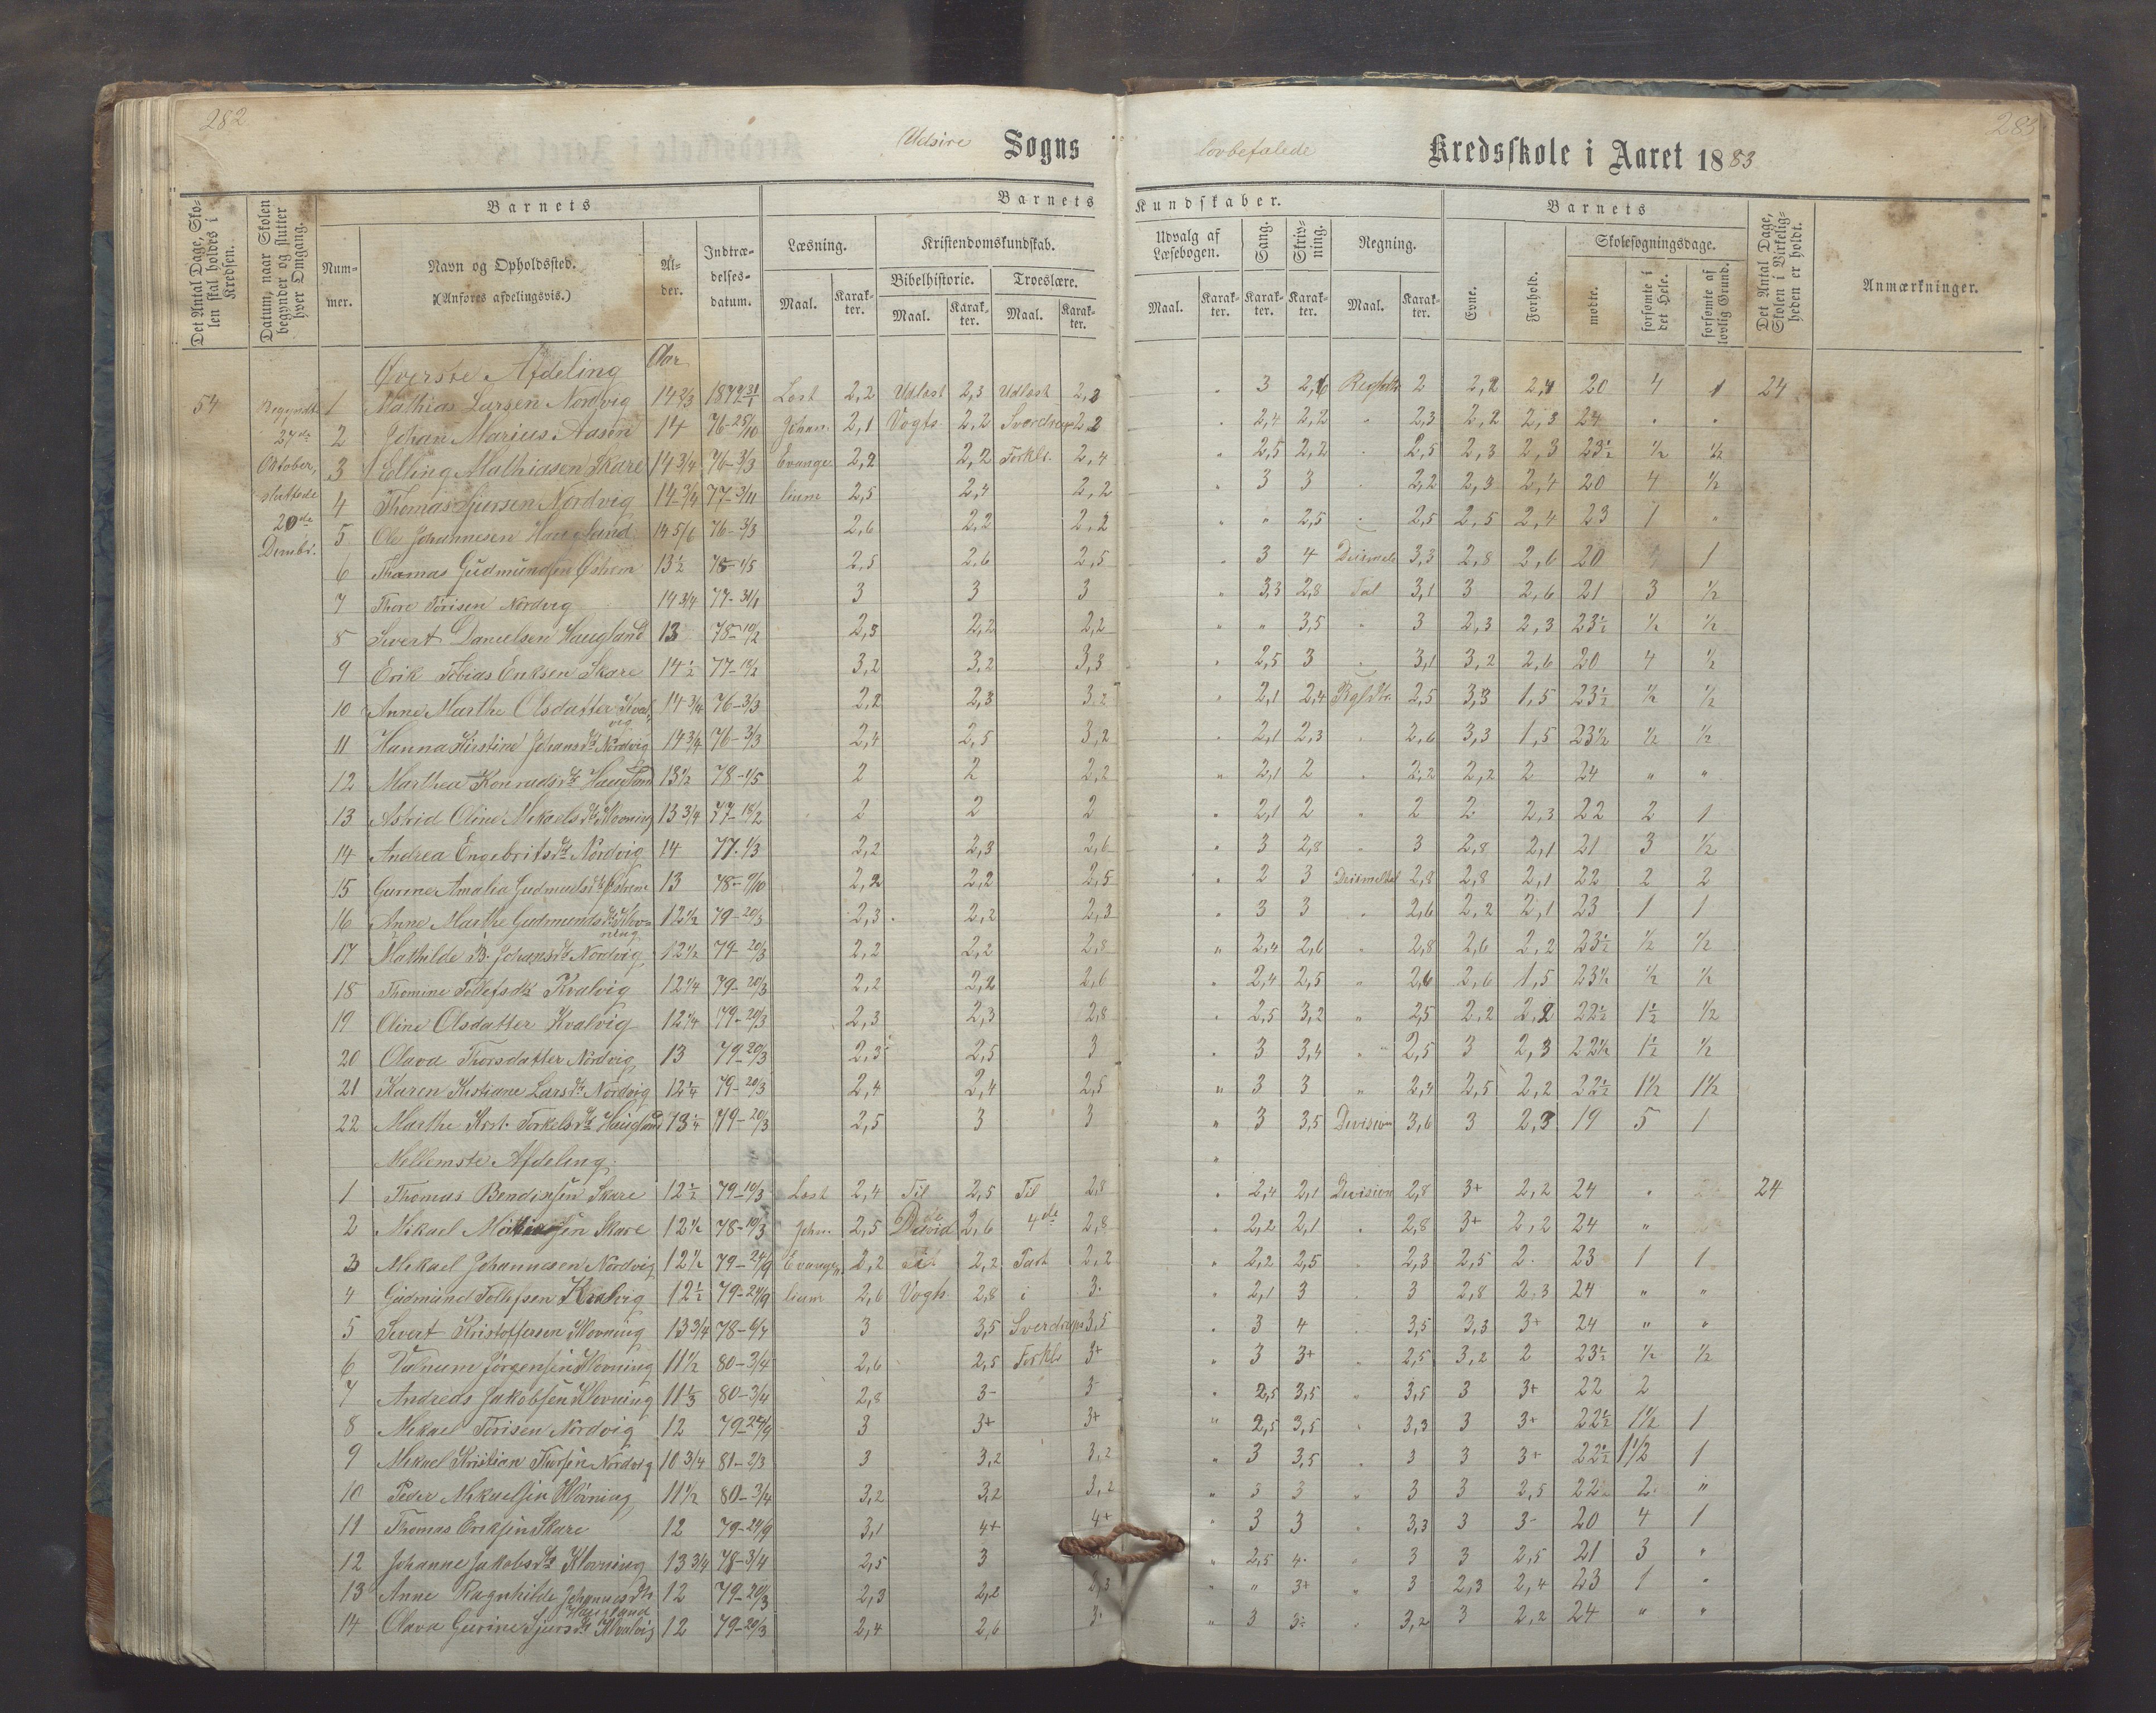 282
283
Udsire Sogns lovbefalede Kredsskole i Aaret 1883.
Det Antal Dage, Skolen skal holdes i Kredsen.
Datum, naar Skolen begynder og slutter hver Omgang.
Barnets
Nummer.
Navn og Opholdssted.
(Anføres afdelingsvis.)
Alder.
Indtrædelses-datum.
Barnets Kundskaber.
Læsning.
Maal. Karakter.
Kristendomskundskab.
Bibelhistorie. Troeslære.
Maal. Karakter. Maal. Karakter.
Udvalg af Læsebogen.
Maal. Karakter.
Sang. Karakter.
Skrivning. Karakter.
Regning.
Maal. Karakter.
Barnets
Evne.
Forhold.
Skolesøgningsdage.
mødte.
forsømte i det Hele.
forsømte af lovlig Grund.
Det Antal Dage, Skolen i Virkeligheden er holdt.
Anmærkninger.
Øverste Afdeling Aar
54 Begyndte 27de Oktober, sluttede 20de Dembr.
1 Mathias Larsen Nordvig 14 2/3 Læst 2,2 Udlæst 2,3 Udlæst 3 2 2,1 20 4 1 24
2 Johan Marius Aasen 14 76-28/10 Johan. 2,1 Vogts 2,2 Sverdrups 2,2 " 2,4 2,2 " 2,3 2,2 2,3 24 " "
3 Elling Mathiasen Skare 14 3/4 76-3/3 Evange 2,2 2,2 Forkl. 2,4 " 2,5 2,2 " 2,5 2,3 2,3 23½ ½ ½
4 Thomas Sjursen Nordvig 14 3/4 77-3/11 lium 2,5 2,4 2,2 " 3 3 " 2,2 2,3 2,4 20 4 ½
5 Ole Johannesen 14 5/6 76-3/3 2,6 2,2 2,2 " " 2,5 " 2,5 2,5 2,4 23 1 "
6 Thomas Gudmundsen Østrem 13½ 78-1/5 2,5 2,6 2,5 " 3 4 3,3 2,8 2,6 20 1
7 Thore Torisen Nordvig 14 3/4 77-31/1 3 3 3 " 3,3 2,8 Tal 3,1 3 2,6 21 3 ½
8 Sivert Danielsen Haugland 13 78-10/2 2,3 2,2 2,2 " " 3,5 " 3 2,3 2,3 23½ ½ ½
9 Erik Tobias Eriksen Skare 14½ 3,2 3,2 3,3 " 2,5 3 " 3,1 3,2 2,6 20 4 ½
10 Anne Marthe Olsdatter Kvalvig 14 3/4 76-3/3 2,2 2,3 3,2 " 2,1 2,4 2,5 3,3 1,5 23½ ½ ½
11 Hanna Kirstine Johansdt Nordvig 14 3/4 76-3/3 2,4 2,5 3,2 " 2,1 2,3 " 2,6 3,3 1,5 23½ ½ ½
12 Marthea Konradsdt Haugland 13½ 78-1/5 2 2 2,2 " 2,1 2 " 2,2 2,2 2 24 " "
13 Astrid Oline Mikaelsdt Klovning 13 3/4 2 2 2 " 2,1 2 " 2 2 2,3 22 2 1
14 Andrea Engebritsdt Nordvig 14 77-1/3 2,2 2,3 2,6 " 3 2,8 " 3 2,8 2,1 21 3 ½
15 Gurine Amalia Østrem 13 2,2 2,2 2,5 " 2 3 Desimeltal 2,8 2,8 2,1 22 2 2
16 Anne Marthe Gudmundsdt Klovning 12½ 79-20/3 2,3 2,2 2,3 " 3 3 " 2,6 2,2 2,1 23 1 1
17 Mathilde B. Johansdt Nordvig 12½ 79-20/3 2,2 2,2 2,8 " 2,4 2,6 " 2,8 2,6 2,2 23½ ½ ½
18 Thomine Tollefsdt Kvalvig 12¼ 79-20/3 2,2 2,2 2,6 " 2,4 2,5 " 2,6 2,6 1,5 23½ ½ ½
19 Oline Olsdatter Kvalvig 12¼ 79-20/3 2,3 2,3 2,8 " 2,5 3,2 " 2,5 2,2 2,2 22½ 1½ ½
20 Olava Thorsdatter Nordvig 13 79-20/3 2,3 2,5 3 " 3 3,4 " 2,5 3 2,3 22½ 1½ ½
21 Karen Kristiane Larsdt Nordvig 12¼ 79-20/3 2,4 2,4 2,5 " 3 3 " 2,5 2,2 22½ 1½ 1½
22 Marthe Krst. Torkelsdt Haugland 13¼ 79-20/3 2,5 3 3 " 3 3,5 Division 3,6 3 2,3 19 5 1
Mellemste Afdeling.
1 Thomas Bendiksen Skare 12½ 79-10/3 Læst 2,4 Til 2,5 Til 2,8 " 2,4 2,1 Division 2,8 3+ 2,2 24 " 24
2 Mikael Mathiassen Skare 12½ 78-10/3 Johan. 2,5 David 2,6 4de 2,8 " 2,2 2,1 " 2,8 3+ 2,2 24 "
3 Mikael Johannesen Nordvig 12½ 79-24/9 Evange 2,2 2,2 Part 2,2 " 2,2 2,5 " 2,3 2,5 2 23 1 1
4 Gudmund Tollefsen Kvalvig 12½ 79-24/9 lium 2,6 Vogts 2,8 i 3 " 2,1 3 " 3 2,8 2,3 24 " "
5 Sivert Kristoffersen Klovning 13 3/4 78-6/7 3 3,5 Sverdrups 3,5 " 3 4 " 3,5 3,3 3+ 24 " "
6 Jørgensen Klovning 11½ 80-3/4 2,6 2,5 Forkl 3+ " 3 3+ " 2,5 3,2 2 23½ ½ ½
7 Andreas Jakobsen Klovning 11⅓ 80-3/4 2,8 3- 3- " 2,5 3,5 " 3,5 3 3+ 22 2
8 Mikael Torisen Nordvig 12 79-24/9 3 3+ 3+ " 2,5 3,5 " 3,3 3 3+ 22½ 1½ 1
9 Mikael Kristian Thorsen Nordvig 10 3/4 81-2/3 3 3,2 3,2 " 3 3,5 " 3 3 3+ 22½ 1½ 1
10 Peder Mikaelsen Klovning 11½ 80-3/4 3,2 3,2 3,2 " 3 3 " 3 3 2,5 22 2 "
11 Thomas Eriksen Skare 12 79-24/9 3,1 4+ 4+ " 3 3 " 3,3 3 3- 20 4 1
12 Johanne Jakobsdt Klovning 13 3/4 78-3/4 2,5 3 " 2,5 4- " 3 3 2,5 21 3 "
13 Anne Ragnhilde Johannesdt Haugland 12 79-20/3 2,3 2,2 " " 3+ " 3 2,3 2,4 23 1 "
14 Olava Gurine Sjursdt Kvalvig 12 79-20/3 2,4 2,6 3- " 3 " 3,2 3 2,2 24 " "